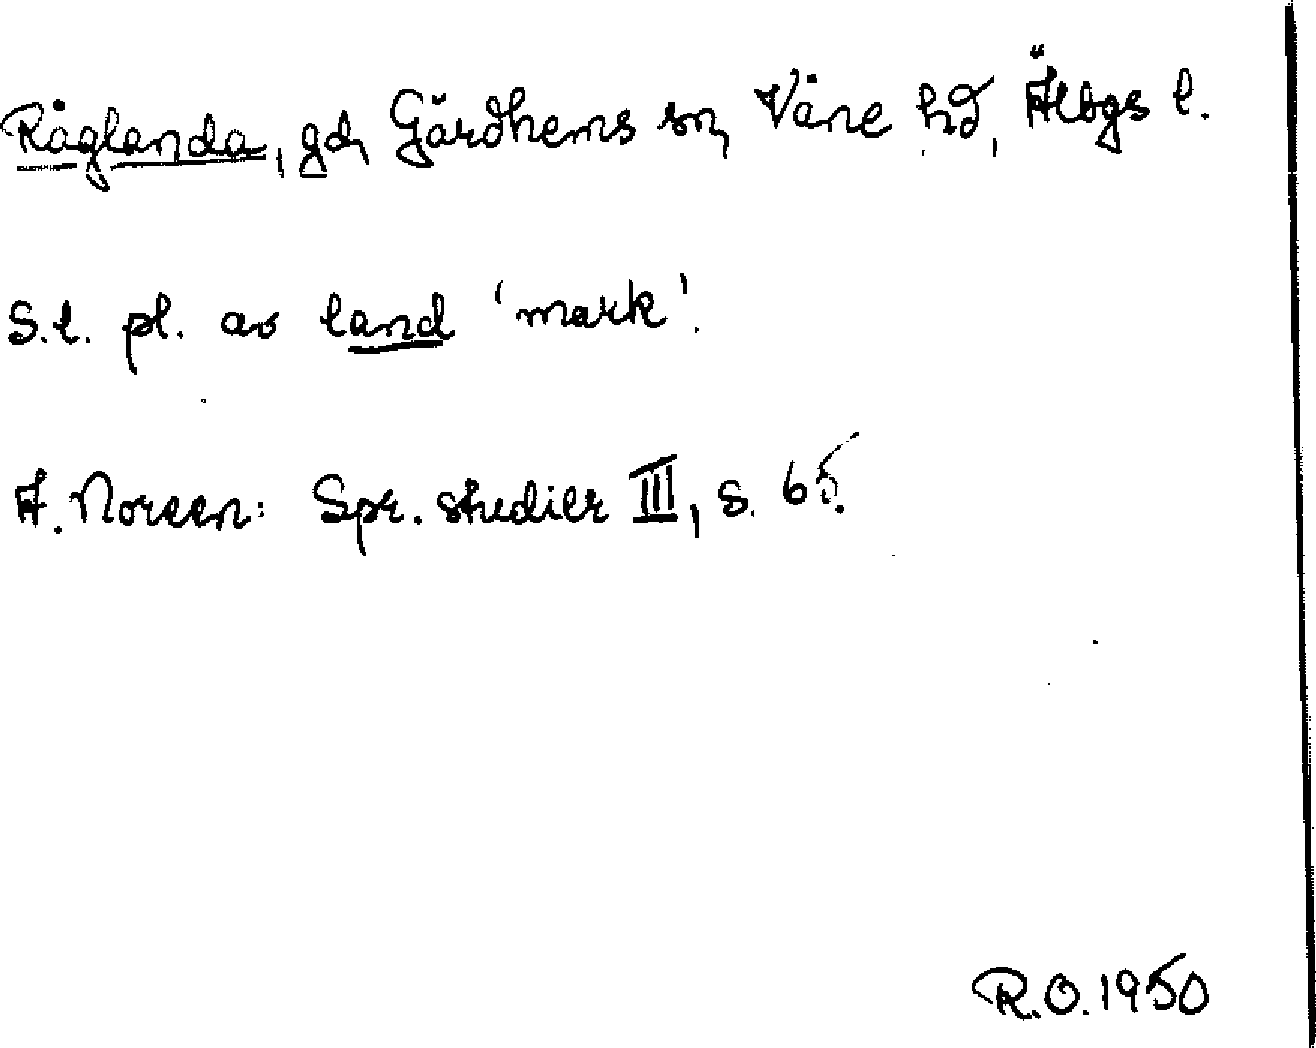 Råglanda, gd, Gärdhems sn, Väne hd, Älbgs l.
S.l. pl. av land 'mark'.
A. Noreen: Spr. studier III, s. 65.
R.O. 1950